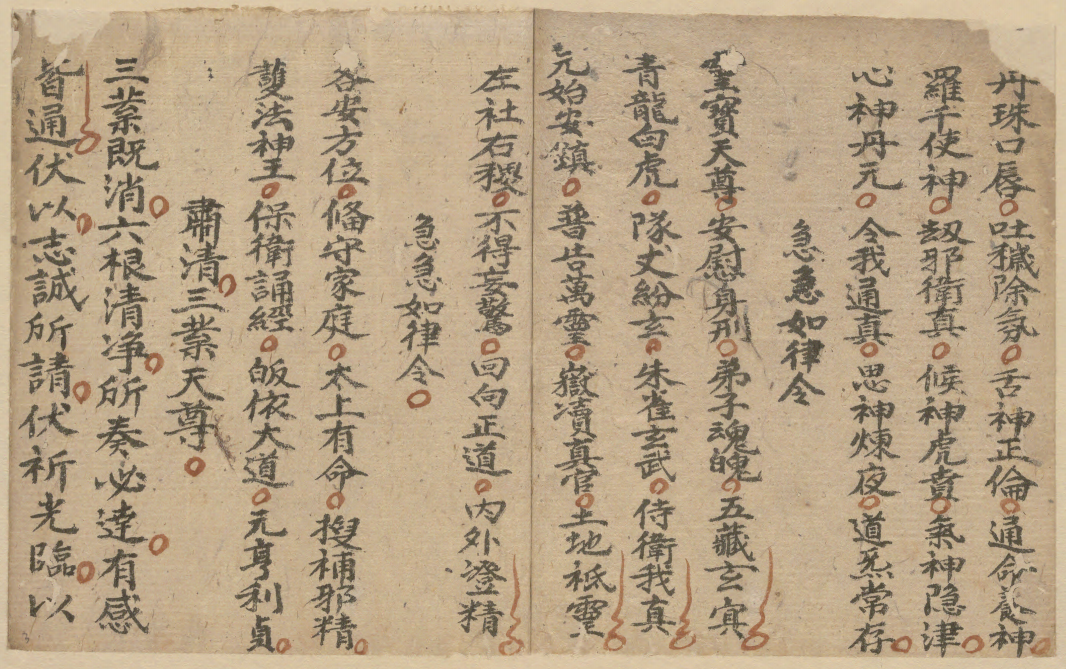 丹珠口唇吐穢除氛舌神正倫通命養神
羅千使神刼邪衛真候神虎賁氣神隐津
心神丹元令我通真思神煉夜道炁常存
急急如律令
寶天尊安慰身刑弟子魂魄五藏玄㝠
青龍白虎隊丈紛玄朱雀玄武侍衛我真
元始安鎮普告萬靈嶽瀆真官土地祇靈
左社右稷不得妄驚回向正道内外澄精
急急如律令
各安方位俻守家庭太上有命搜補邪精
護法神王保衛誦經皈依大道元亨利貞
肅清三業天尊
三業既消六根清净所奏必達有感
皆通伏以志誠所請伏祈光臨以